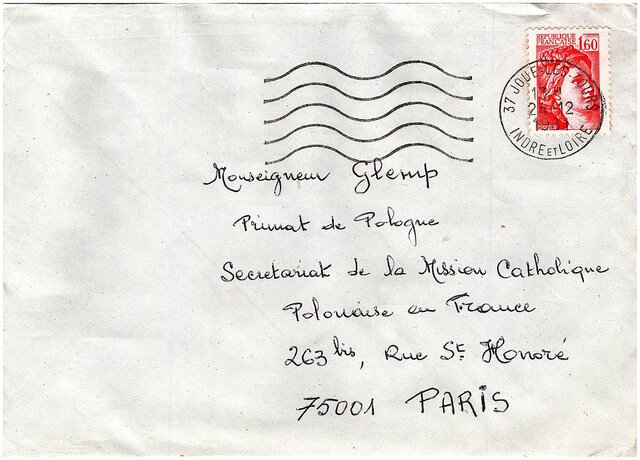 REPUBLIQUE
FRANÇAISE 1,60
37 JOUE-LES-TOURS
12
INDRE ET LOIRE
Monseigneur Glemp
Primat de Pologne
Secretariat de la Mission Catholique
Polonaise en France
263 bis, Rue St Honoré
75001 PARIS